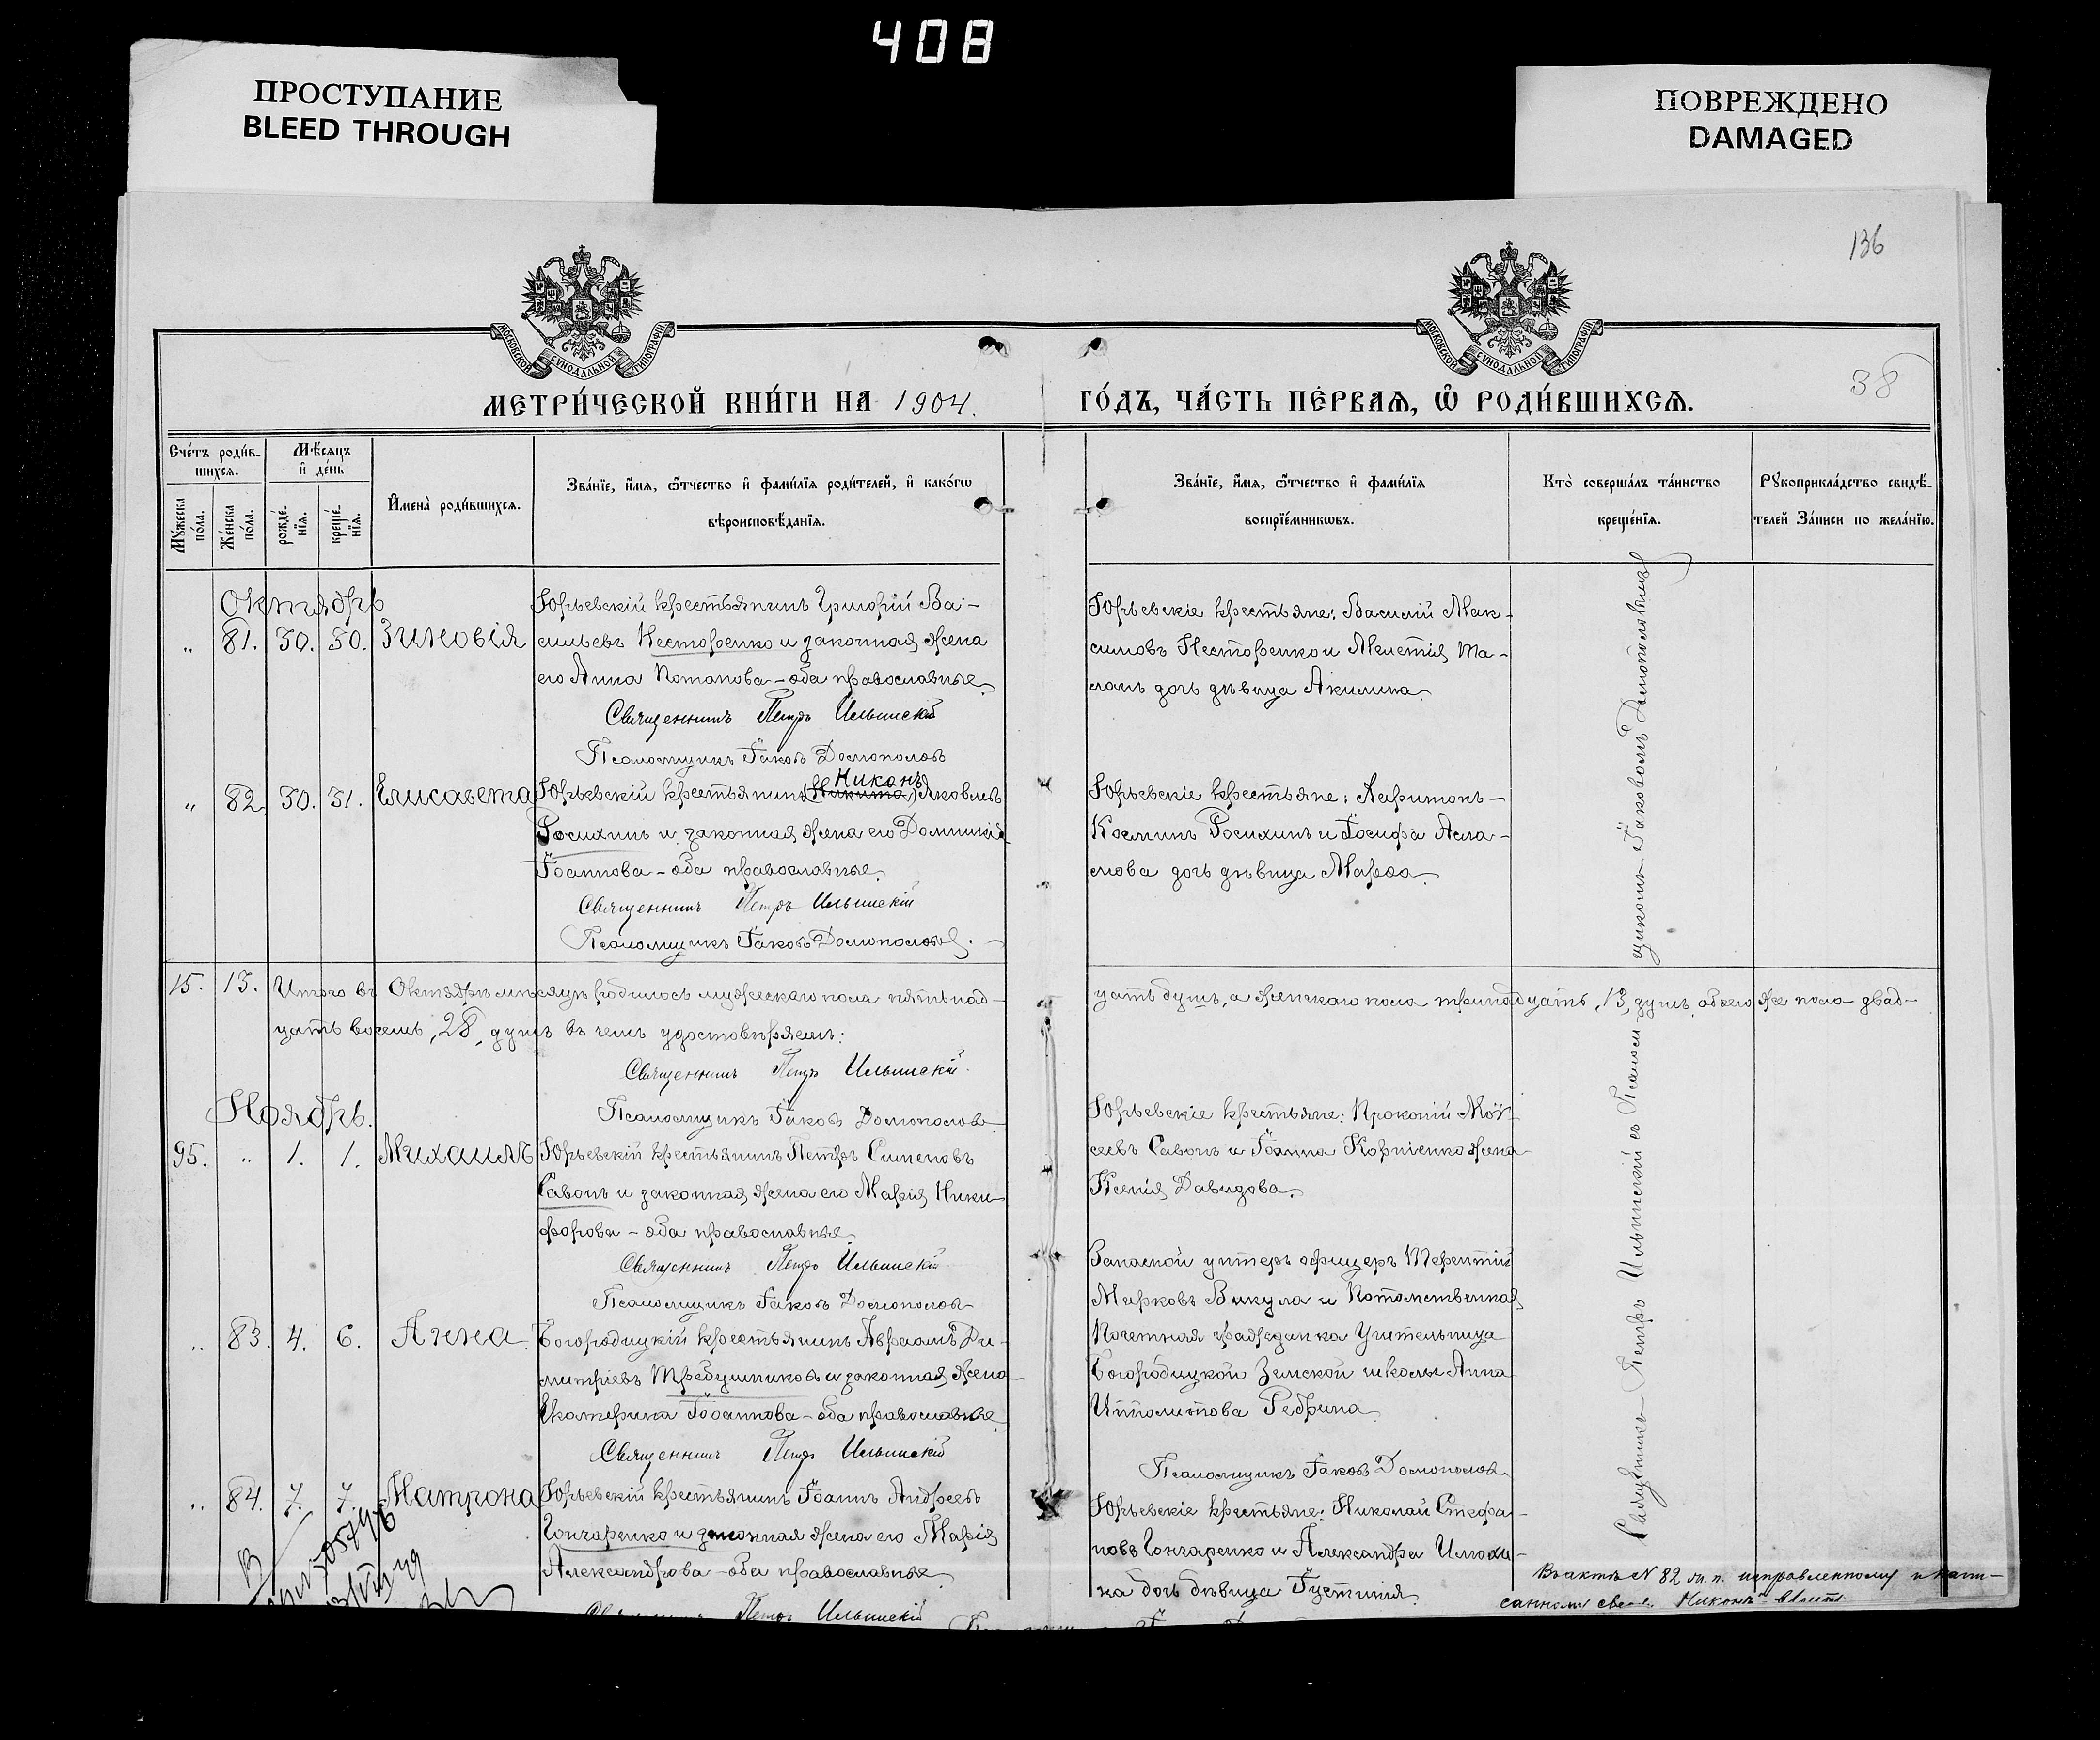 408
ПРОСТУПАНИЕ
BLEED THROUGH
ПОВРЕЖДЕНО
DAMAGED
136
38
МОСКОВСКОЙ СУНОДАЛЬНОЙ ТИПОГРАФІИ
МОСКОВСКОЙ СУНОДАЛЬНОЙ ТИПОГРАФІИ
МЕТРИ́ЧЕСКОЙ КНИ́ГИ НА 1904. ГО́ДЪ, ЧА́СТЬ ПЕ́РВАѦ, Ѡ҆ РОДИ́ВШИХСѦ.
Сче́тъ роди́в-
шихсѧ.
Мѣ́сѧцъ
и҆ де́нь
Мꙋ́жеска по́ла.
Же́нска по́ла.
рожде́-нїѧ.
креще́-нїѧ.
И҆мена̀ роди́вшихсѧ.
Зва́нїе, и҆́мѧ, ѻ҆́тчество и҆ фами́лїѧ роди́телей, и҆ како́гѡ
вѣроисповѣ́данїѧ.
Зва́нїе, и҆́мѧ, ѻ҆́тчество и҆ фами́лїѧ
воспрїе́мникѡвъ.
Кто̀ соверша́лъ та́инство
креще́нїѧ.
Рꙋкоприкла́дство свидѣ́-
телей за́писи по жела́нїю.
Октябрь
„ 81. 30. 30. Зиновія
Юрьевскій крестьянинъ Григорій Ва-
сильевъ Несторенко и законная жена
его Анна Потапова – оба православные.
Священникъ Петръ Ильинскій
Псаломщикъ Іаковъ Домополовъ
Юрьевскіе крестьяне: Василій Мак-
симовъ Несторенко и
дочь дѣвица Акилина.
„ 82. 30. 31. Елисавета
Никонъ
Юрьевскій крестьянинъ (Никита) Яковлевъ
Росихинъ и законная жена его Домникія
Іоаннова – оба православные.
Священникъ Петръ Ильинскій
Псаломщикъ Іаковъ Домополовъ.
Юрьевскіе крестьяне:
Косминъ Росихинъ и Іосифа Асла-
мова дочь дѣвица Марѳа.
15. 13. Итого въ Октябрѣ мѣсяцѣ родилось мужескаго пола пятьнад-
цать душъ, а женскаго пола тринадцать, 13, душъ, обоего же пола двад-
цать восемь, 28, душъ въ чемъ удостовѣряемъ:
Священникъ Петръ Ильинскій
Псаломщикъ Іаковъ Домополовъ
Ноябрь.
95. „ 1. 1. Михаилъ
Юрьевскій крестьянинъ Петръ Симеоновъ
Савонъ и законная жена его Марія Ники-
форова – оба православные.
Священникъ Петръ Ильинскій
Псаломщикъ Іаковъ Домополовъ
Юрьевскіе крестьяне: Прокопій Мои-
сеевъ Савонъ и Іоанна Корніенко жена
Ксенія Давидова.
„ 83. 4. 6. Анна
Богородицкій крестьянинъ Авраамъ Ди-
митріевъ Требушниковъ и законная жена
Екатерина Іоаннова – оба православные.
Священникъ Петръ Ильинскій
Запасной унтеръ офицеръ Терентій
Марковъ Викула и Потомственная
Почетная гражданка Учительница
Богородицкой Земской школы Анна
Ипполитова Ребрина
Псаломщикъ Іаковъ Домополовъ
„ 84. 7. 7. Матрона
Юрьевскій крестьянинъ Іоаннъ Андреевъ
Гончаренко и законная жена его Марія
Александрова – оба православные.
Петръ Ильинскій
Юрьевскіе крестьяне: Николай Стефа-
новъ Гончаренко и Александра
дочь дѣвица Іустинія.
Священникъ Петръ Ильинскій съ Псалом-
щикомъ Іаковомъ Домополовымъ
Въ актѣ N 82 ж. п. исправленному и напи-
санному Никонъ